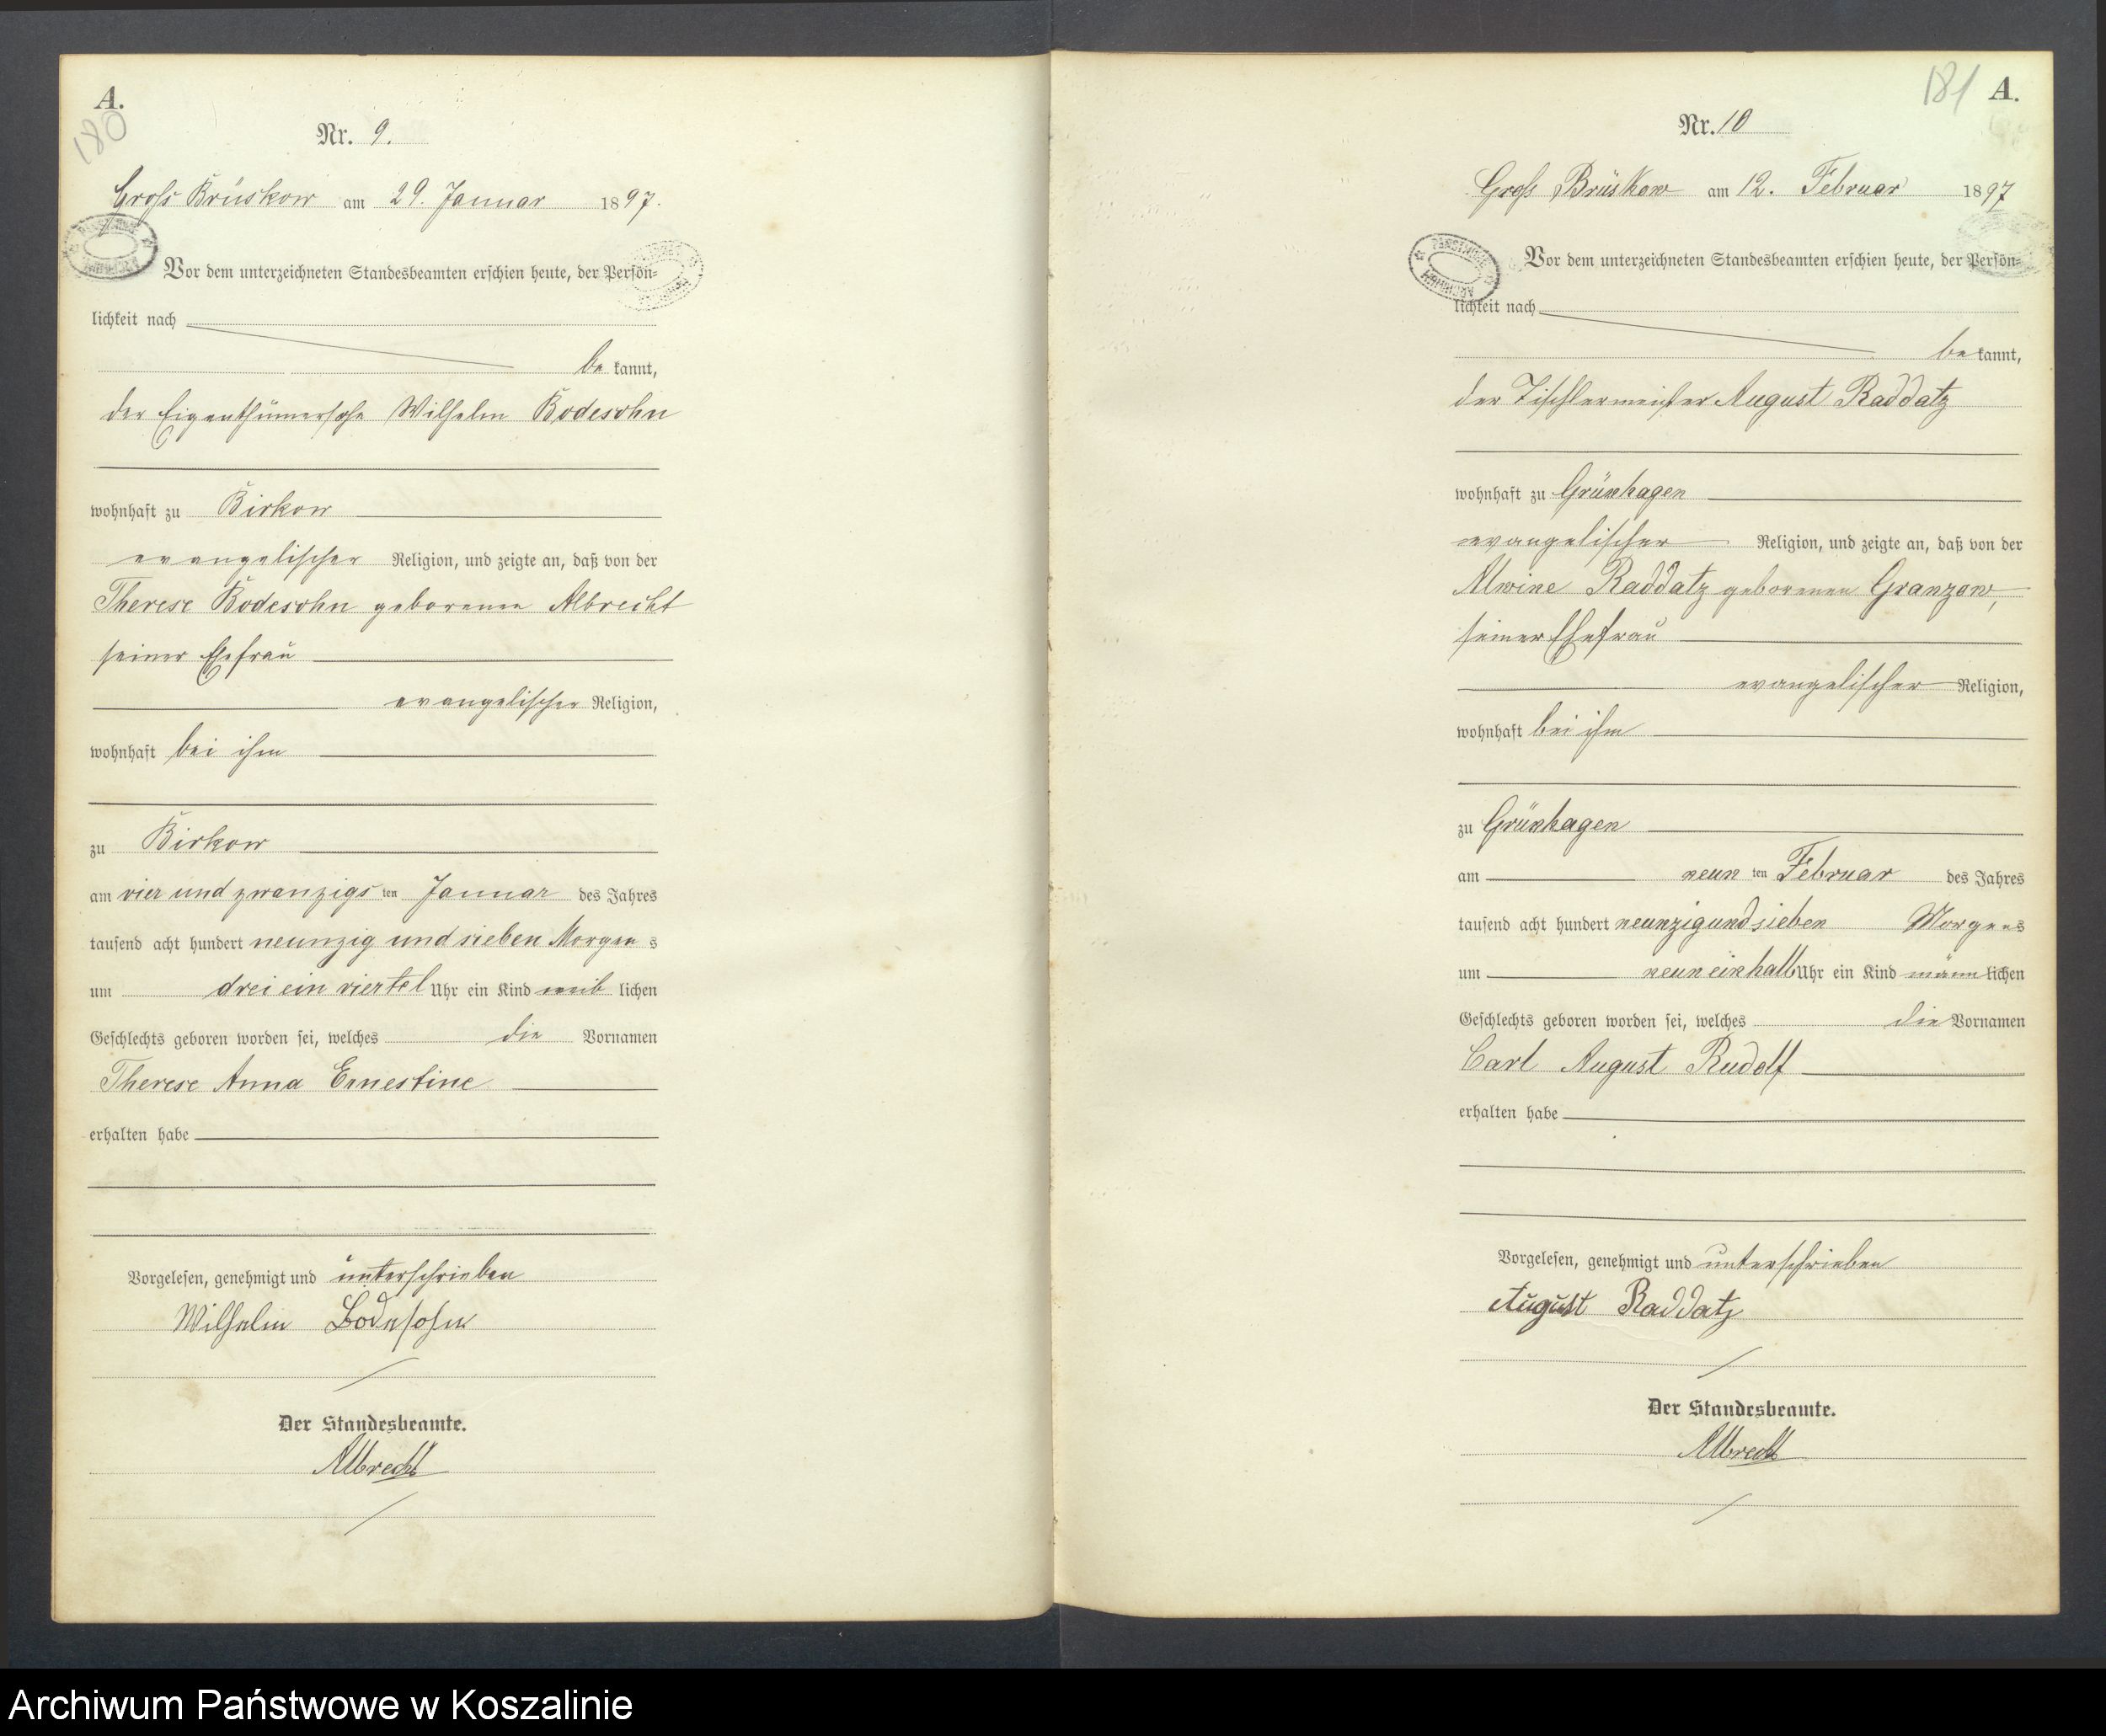 A.
180
Nr. 9.
Gross Brüskow am 29. Januar 1897.
Vor dem unterzeichneten Standesbeamten erschien heute, der Persön-
lichkeit nach
be kannt,
der Wilhelm Bodesohn
wohnhaft zu Birkow
evangelischer Religion, und zeigte an, daß von der
Therese Bodesohn geborenen Albrecht
seiner Ehefrau
evangelischer Religion,
wohnhaft bei ihm
zu Birkow
am vier und zwanzigs ten Januar des Jahres
tausend acht hundert neunzig und sieben Morgen s
um drei ein viertel Uhr ein Kind weib lichen
Geschlechts geboren worden sei, welches die Vornamen
Therese Anna Ernestine
erhalten habe
Vorgelesen, genehmigt und unterschrieben
Wilhelm Bodesohn
Der Standesbeamte.
Albrecht
181 A.
Nr. 10
Gross Brüskow am 12. Februar 1897
Vor dem unterzeichneten Standesbeamten erschien heute, der Persön-
lichkeit nach
be kannt,
der Tischlermeister August Raddatz
wohnhaft zu Grünhagen
evangelischer Religion, und zeigte an, daß von der
Alwine Raddatz geborenen Granzow,
seiner Ehefrau
evangelischer Religion,
wohnhaft bei ihm
zu Grünhagen
am neun ten Februar des Jahres
tausend acht hundert neunzig und sieben Morgens
um neun ein halb Uhr ein Kind männ lichen
Geschlechts geboren worden sei, welches die Vornamen
Carl August Rudolf
erhalten habe
Vorgelesen, genehmigt und unterschrieben
August Raddatz
Der Standesbeamte.
Albrecht
Archiwum Państwowe w Koszalinie